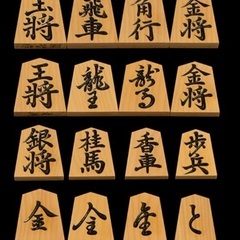 玉將 飛車 角行 金将
王將 龍王 龍馬 金将
銀将 桂馬 香車 歩兵
金 全 と